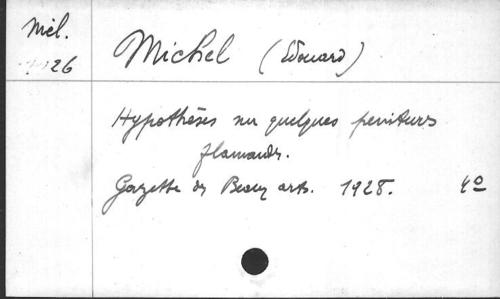 Mél.
26
Michel (Edouard)
Hypothèses sur quelques peintres
flamands.
Gazette des Beaux arts. 1928. 4o